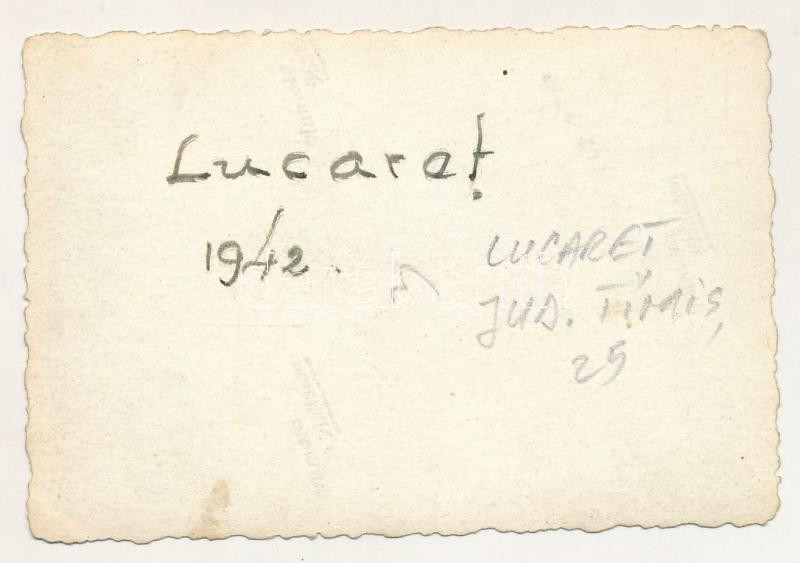 Lucareț
1942.
LUCAREȚ
JUD. TIMIȘ
25